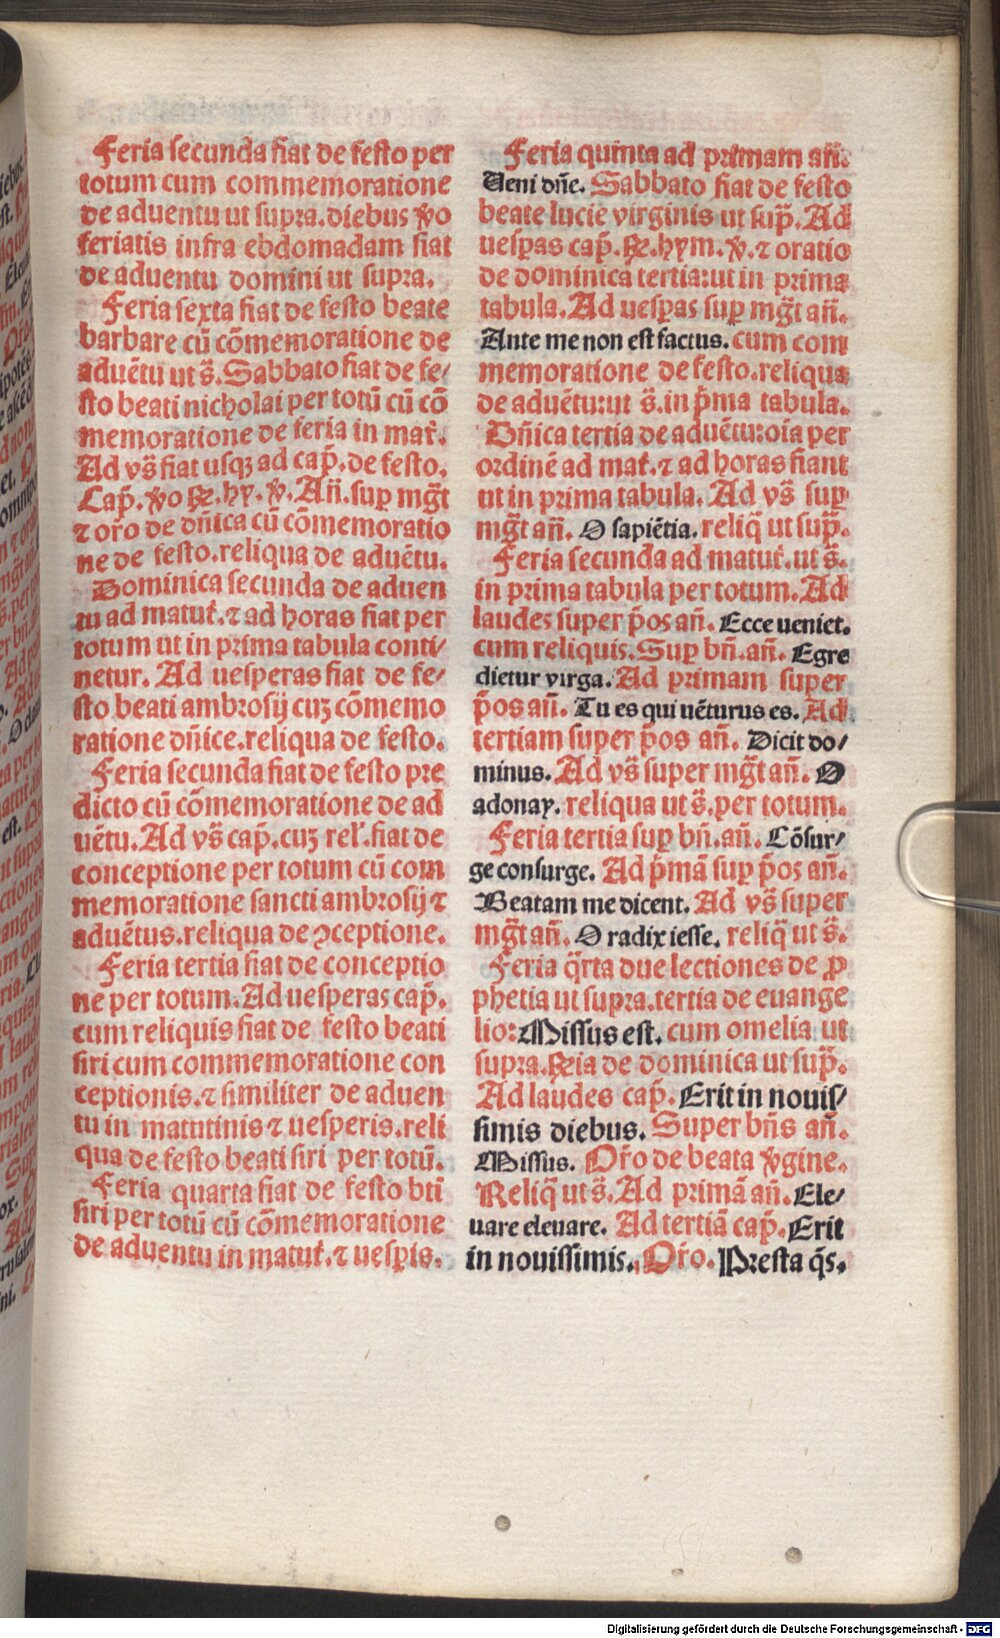 Feria secunda fiat de festo per
totum cum commemoratione
de aduentu ut supra. diebus ṽo
feriatis infra ebdomadam fiat
de aduentu domini ut supra.
Feria sexta fiat de festo beate
barbare cū cōmemoratione de
aduētu ut s̄. Sabbato fiat de fe/
sto beati nicholai per totū cū cō
memoratione de feria in mat̄.
Ad vs̄ fiat usqꝫ ad cap̄. de festo.
Cap̄. ṽo ꝶ. hy. ꝟ. Añ. sup mḡt
⁊ oro de dñica cū cōmemoratio
ne de festo. reliqua de aduētu.
Dominica secunda de aduen
tu ad matut̄. ⁊ ad horas fiat per
totum ut in prima tabula conti/
netur. Ad uesperas fiat de fe/
sto beati ambrosij cuꝫ cōmemo
ratione dñice. reliqua de festo.
Feria secunda fiat de festo pre
dicto cū cōmemoratione de ad
uētu. Ad vs̄ cap̄. cuꝫ rel̄. fiat de
conceptione per totum cū com
memoratione sancti ambrosij ⁊
aduētus. reliqua de ꝯceptione.
Feria tertia fiat de conceptio
ne per totum. Ad uesperas cap̄.
cum reliquis fiat de festo beati
siri cum commemoratione con
ceptionis. ⁊ similiter de aduen
tu in matutinis ⁊ uesperis. reli
qua de festo beati siri per totū.
Feria quarta fiat de festo bti
siri per totū cū cōmemoratione
de aduentu in matut̄. ⁊ uesꝑis.
Feria quinta ad primam añ.
Veni dñe. Sabbato fiat de festo
beate lucie virginis ut sup̄. Ad
uesꝑas cap̄. ꝶ. hym. ꝟ. ⁊ oratio
de dominica tertia: ut in prima
tabula. Ad uesꝑas suꝑ mḡt añ.
Ante me non est factus. cum com
memoratione de festo. reliqua
de aduētu: ut s̄. in p̄ma tabula.
Dñica tertia de aduētu: oīa per
ordinē ad mat̄. ⁊ ad horas fiant
ut in prima tabula. Ad vs̄ suꝑ
mḡt añ. O sapiētia. reliq̄ ut sup̄.
Feria secunda ad matut̄. ut s̄.
in prima tabula per totum. Ad
laudes super p̄os añ. Ecce ueniet.
cum reliquis. Suꝑ bñ. añ. Egre
dietur virga. Ad primam super
p̄os añ. Tu es qui uēturus es. Ad
tertiam super p̄os añ. Dicit do/
minus. Ad vs̄ super mḡt añ. O
adonay. reliqua ut s̄. per totum.
Feria tertia suꝑ bñ. añ. Cōsur/
ge consurge. Ad p̄mā suꝑ p̄os añ.
Beatam me dicent. Ad vs̄ super
mḡt añ. O radix iesse. reliq̄ ut s̄.
Feria q̄rta due lectiones de ꝓ
phetia ut supra. tertia de euange
lio: Missus est. cum omelia ut
supra. ꝶia de dominica ut sup̄.
Ad laudes cap̄. Erit in nouis/
simis diebus. Super bñs añ.
Missus. Oro de beata ꝟgine.
Reliq̄ ut s̄. Ad primā añ. Ele/
uare eleuare. Ad tertiā cap̄. Erit
in nouissimis. Oro. Presta q̄s.
Digitalisierung gefördert durch die Deutsche Forschungsgemeinschaft - DFG